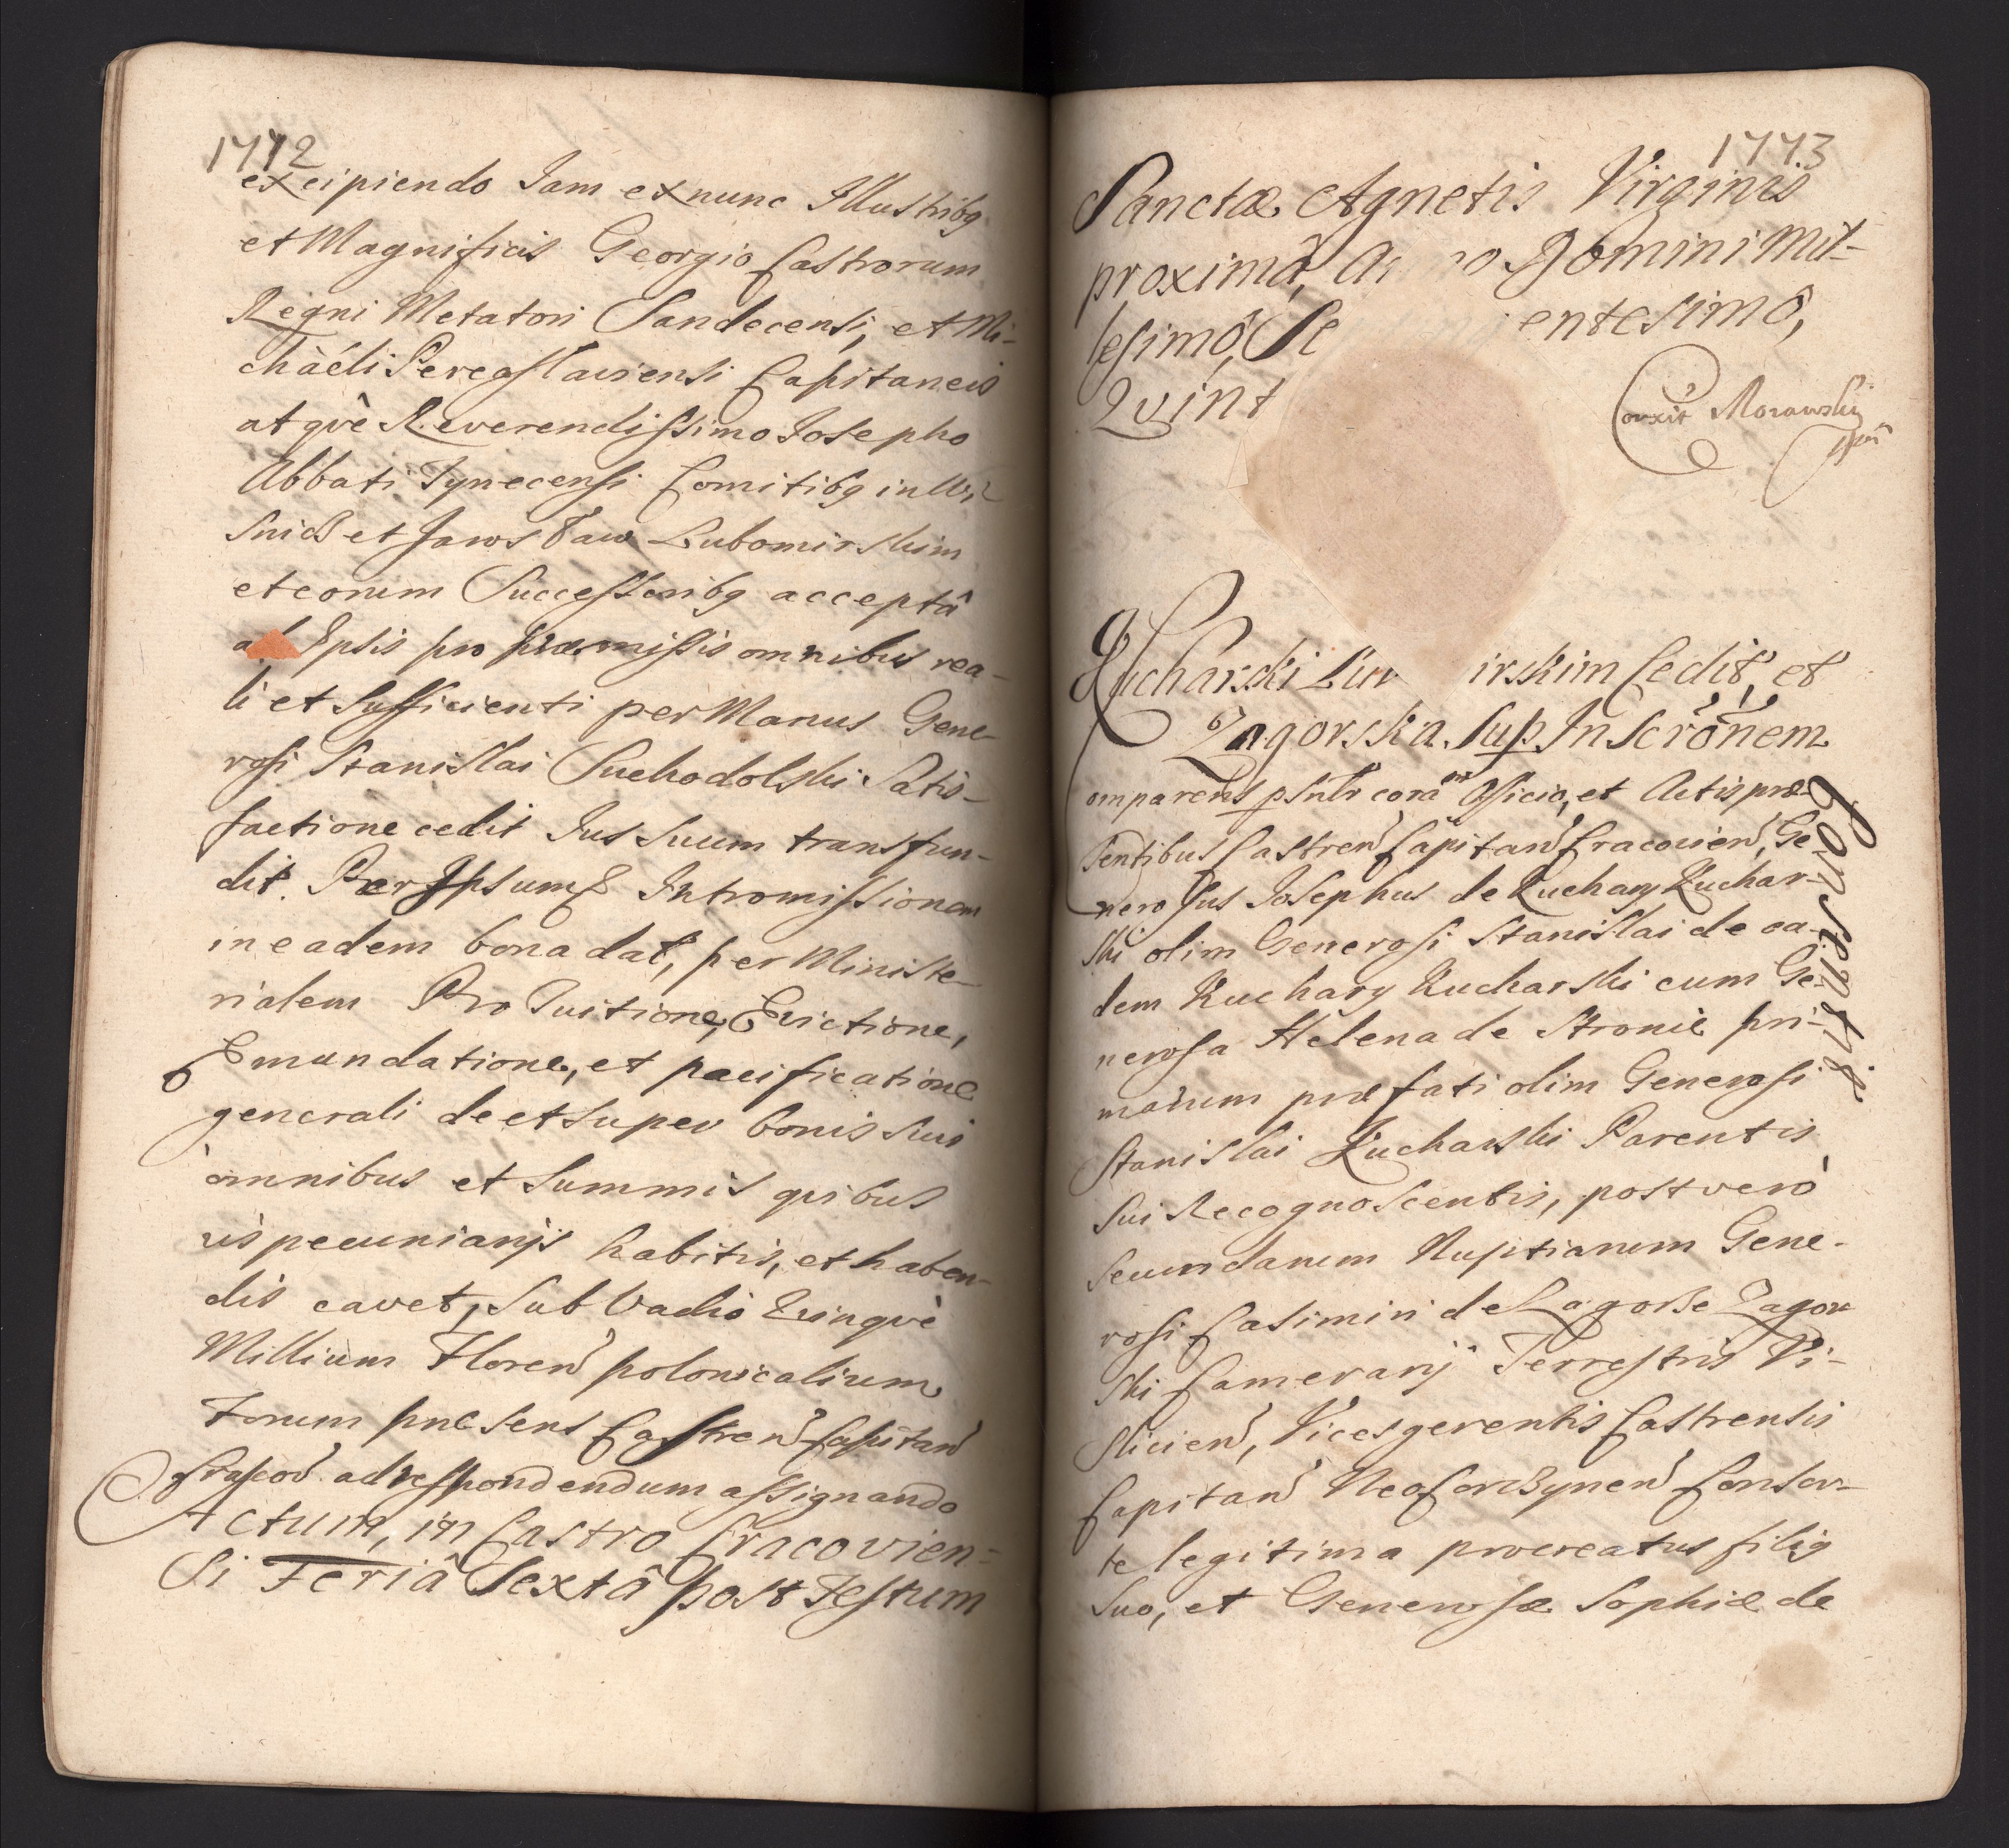 1772
excipiendo Jam exnunc Illustribq
et Magnificis Georgio Castrorum
Regni Metatori Sandecensi, et Mi-
chaéli Pereaslaviensi Capitaneis
atqvè Reverendissimo Josepho
Abbati Tynecensi Comitibq in Wi-
snicz et Jarosław Lubomirskim
et eorum Successoribq acceptâ
Ipsis pro præmissis omnibus rea-
li et Sufficienti per Manus Gene-
rosi Stanislai Suchodolski Satis-
factione cedit Jus Suum transfun-
dit. Per Ipsumq Intromissionem
in eadem bona dat, per Ministe-
rialem Pro Tuitione, Evictione,
Emundatione, et pacificatione
generali de et super bonis suis
omnibus et Summis qvibus
vis pecuniarijs habitis, et haben-
dis cavet, Sub Vadio Qvinqvè
Millium Floren polonicalium
Forum præsens Castren Capitan
Cracov ad respondendum assignando
Actum, in Castro Cracovien-
Si Feriâ Sextâ post Festum
1773
Sanctæ Agnetis Virginis
proximâ, A no Domini Mil-
lesimô, Se entesimô,
Qvint
Conxit Morawski
mpr
Kucharski Lu irskim Cedit, et
Zagorska. Sup. Inscrõnem
Consensus
omparens psnlr corã Officio, et Actis præ-
sentibus Castren Capitan Cracovien, Ge
nerosus Josephus de Kuchary Kuchar-
ski olim Generosi Stanislai de ea-
dem Kuchary Kucharski cum Ge-
nerosa Helena de Stronie pri-
marum præfati olim Generosi
Stanislai Kucharski Parentis
Sui Recognoscentis, post verò
Secundarum Nuptiarum Gene-
rosi Casimiri de Zagorze Zagor
ski Camerarij Terrestris Vi-
slicien, Vicesgerentis Castrensis
Capitan Neocorczynen Consor-
te legitima procreatus filiq
Suo, et Generosæ Sophiæ de